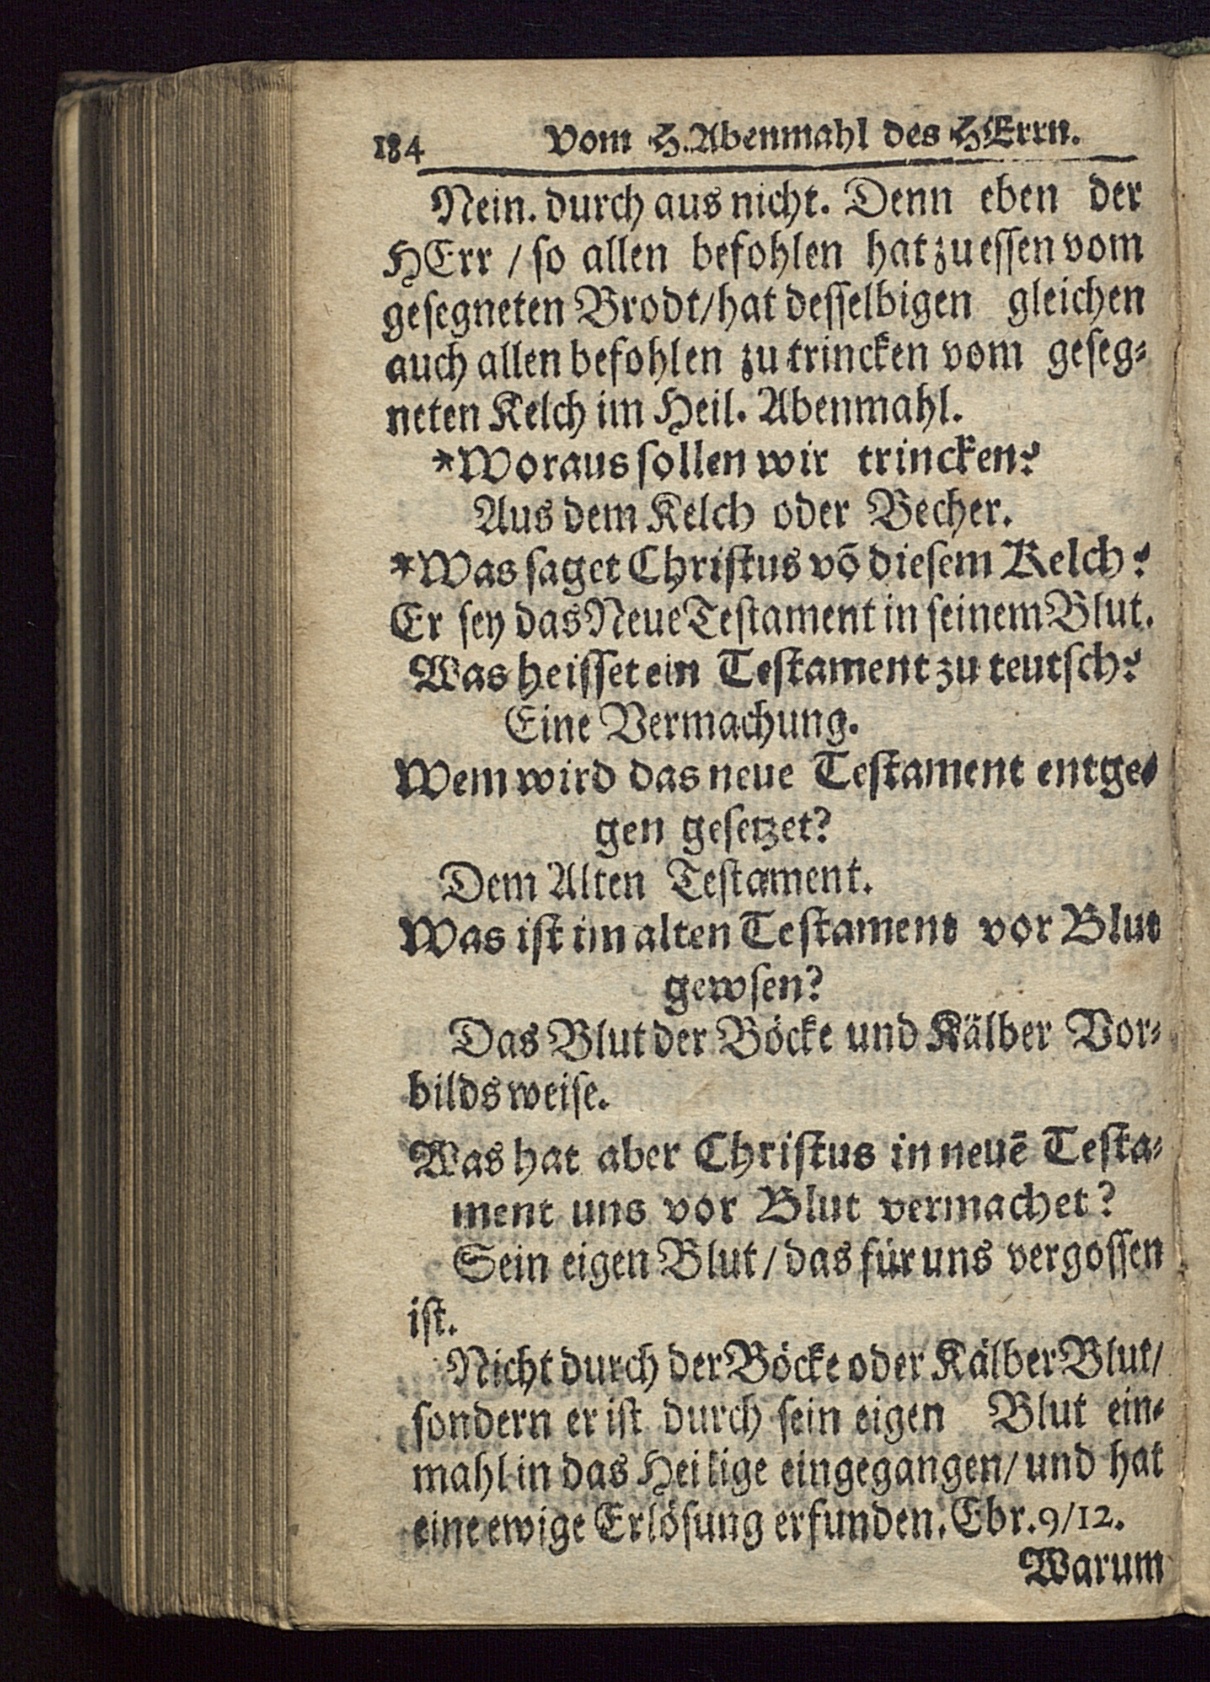 184 Vom H. Abenmahl des HErrn.
Nein. durch aus nicht. Denn eben der
HErr / so allen befohlen hat zu essen vom
gesegneten Brodt/ hat desselbigen gleichen
auch allen befohlen zu trincken vom geseg-
neten Kelch im Heil. Abenmahl.
*Woraus sollen wir trincken?
Aus dem Kelch oder Becher.
*Was saget Christus võ diesem Kelch?
Er sey das Neue Testament in seinem Blut.
Was heisset ein Testament zu teutsch?
Eine Vermachung.
Wem wird das neue Testament entge-
gen gesetzet?
Dem Alten Testament.
Was ist im alten Testament vor Blut
gewsen?
Das Blut der Böcke und Kälber Vor-
bilds weise.
Was hat aber Christus in neuē Testa-
ment uns vor Blut vermachet?
Sein eigen Blut/ das für uns vergossen
ist.
Nicht durch der Böcke oder Kälber Blut/
sondern er ist durch sein eigen Blut ein-
mahl in das Heilige eingegangen/ und hat
eine ewige Erlösung erfunden. Ebr. 9/12.
Warum